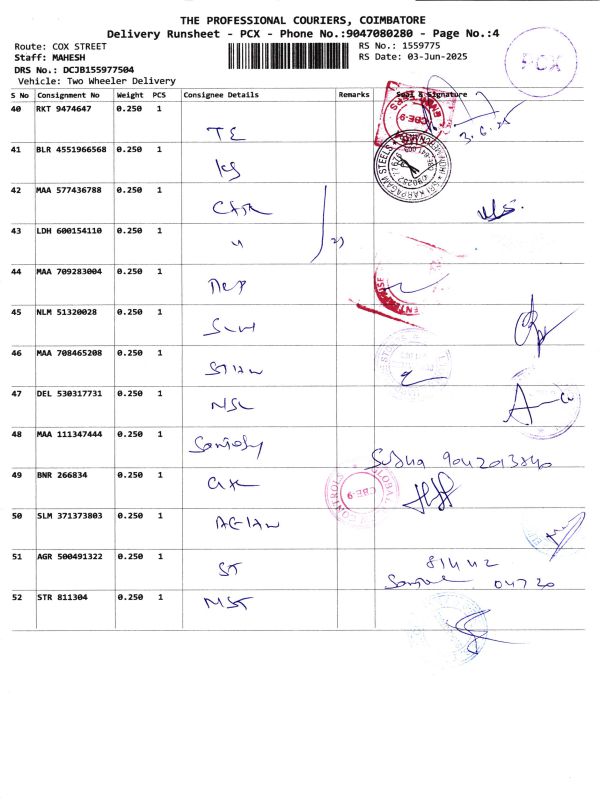 THE PROFESSIONAL COURIERS, COIMBATORE
Delivery Runsheet - PCX - Phone No.:9047080280 - Page No.:4
Route: COX STREET
RS No.: 1559775
Staff: MAHESH
RS Date: 03-Jun-2025
DRS No.: DCJB155977504
Vehicle: Two Wheeler Delivery
PCX
S No Consignment No Weight PCS Consignee Details Remarks Seal & Signature
40 RKT 9474647 0.250 1
TE
CBE-9
3.6.25
41 BLR 4551966568 0.250 1
KS
SRI KARPAGAM STEELS
42 MAA 577436788 0.250 1
43 LDH 600154110 0.250 1
"
2)
44 MAA 709283004 0.250 1
ENTERPRISE
45 NLM 51320028 0.250 1
46 MAA 708465208 0.250 1
47 DEL 530317731 0.250 1
NSC
48 MAA 111347444 0.250 1
Santosh
Sudha 9042013840
49 BNR 266834 0.250 1
GLOBAL
CONTROLS
CBE-9
50 SLM 371373803 0.250 1
51 AGR 500491322 0.250 1
ST
81442
04720
52 STR 811304 0.250 1
MST